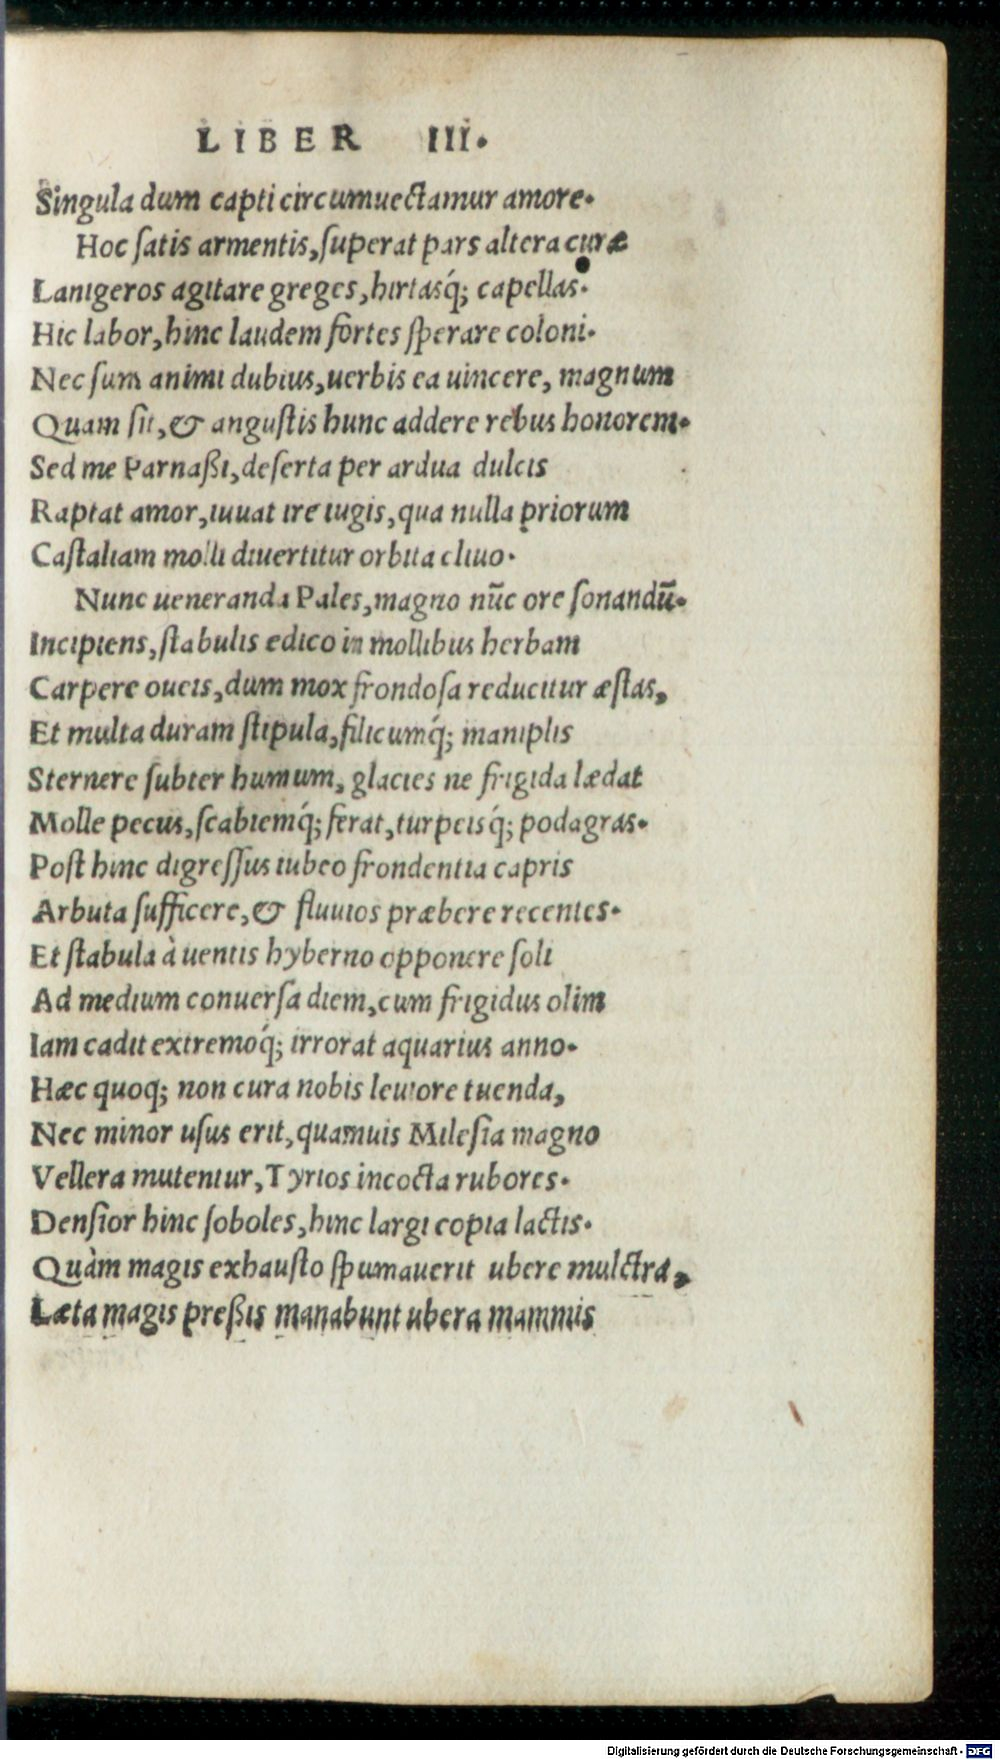 LIBER III.
Singula dum capti circumuectamur amore.
Hoc ſatis armentis, ſuperat pars altera curæ
Lanigeros agitare greges, hirtasq́; capellas.
Hic labor, hinc laudem fortes ſperare coloni.
Nec ſum animi dubius, uerbis ea uincere, magnum
Quam ſit, & anguſtis hunc addere rebus honorem.
Sed me Parnaßi, deſerta per ardua dulcis
Raptat amor, iuuat ire iugis, qua nulla priorum
Caſtaliam molli diuertitur orbita cliuo.
Nunc ueneranda Pales, magno nūc ore ſonandū.
Incipiens, ſtabulis edico in mollibus herbam
Carpere oueis, dum mox frondoſa reducitur æſtas,
Et multa duram ſtipula, filicumq́; maniplis
Sternere ſubter humum, glacies ne frigida lædat
Molle pecus, ſcabiemq́; ferat, turpeisq́; podagras.
Poſt hinc digreſſus iubeo frondentia capris
Arbuta ſufficere, & fluuios præbere recentes.
Et ſtabula à uentis hyberno opponere ſoli
Ad medium conuerſa diem, cum frigidus olim
Iam cadit extremoq́; irrorat aquarius anno.
Hæc quoq; non cura nobis leuiore tuenda,
Nec minor uſus erit, quamuis Mileſia magno
Vellera mutentur, Tyrios incocta rubores.
Denſior hinc ſoboles, hinc largi copia lactis.
Quàm magis exhauſto ſpumauerit ubere mulctra,
Læta magis preßis manabunt ubera mammis
Digitalisierung gefördert durch die Deutsche Forschungsgemeinschaft - DFG